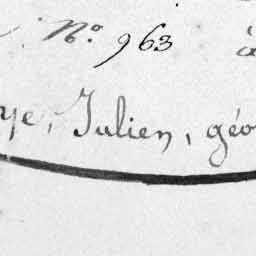 N.o 963 à
ye, Julien, géo